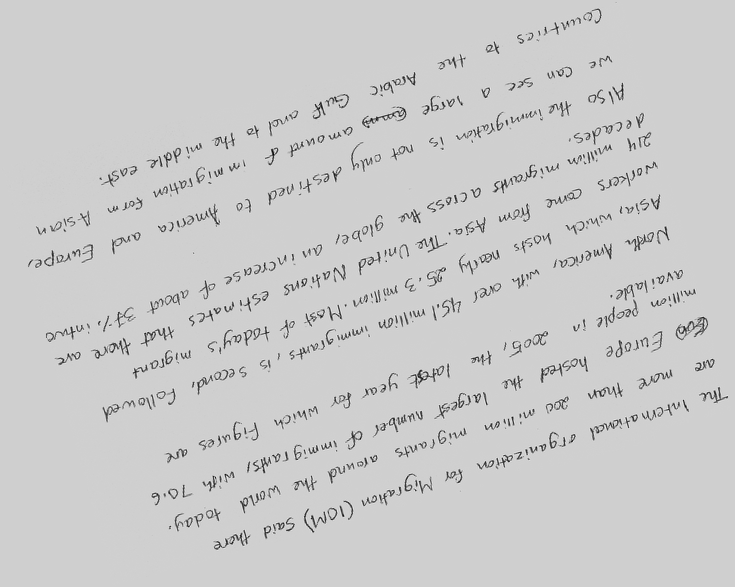 The International organization for Migration (IOM) said there
are more than 200 million migrants around the world today.
Europe hosted the largest number of immigrants, with 70.6
million people in 2005, the latest year for which figures are
available.
North America, with over 45.1 million immigrants, is second, followed
Asia, which hosts nearly 25.3 million. Most of today's migrant
workers come from Asia. The United Nations estimates that there are
214 million migrants across the globe, an increase of about 37% in two
decades.
Also the immigration is not only destined to America and Europe,
we can see a large amount of immigration form Asian
Countries to the Arabic Gulf and to the middle east.